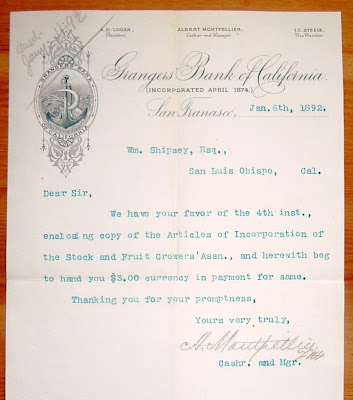 A. D. LOGAN,
President.
ALBERT MONTPELLIER,
Cashier and Manager.
I. C. STEELE,
Vice President.
Jany 11. 92
Grangers' Bank of California.
(INCORPORATED APRIL 1874.)
GRANGERS' BANK
OF CALIFORNIA
San Francisco, Jan. 6th, 1892.
Wm. Shipsey, Esq.,
San Luis Obispo, Cal.
Dear Sir,
We have your favor of the 4th inst.,
enclosing copy of the Articles of Incorporation of
the Stock and Fruit Growers' Assn., and herewith beg
to hand you $3.00 currency in payment for same.
Thanking you for your promptness,
Yours very truly,
A. Montpellier
Cashr. and Mgr.